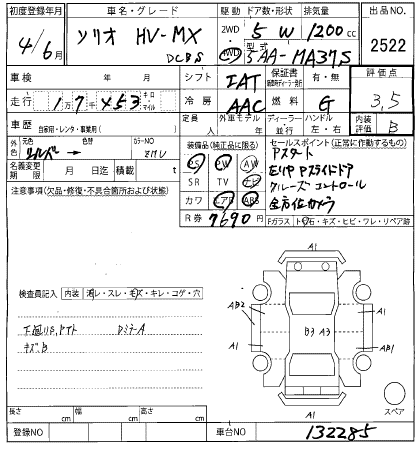 初度登録年月 車名・グレード 駆動 ドア数・形状 排気量 出品NO.
4/6月 ソリオ HV-MX 2WD 5 W 1200cc
DCBS 4WD 型式 5AA-MA37S 2522
車検 年 月 シフト IAT 保証書 有・無 評価点
走行 1万7千453 キロ マイル 冷房 AAC 燃料 G 3.5
車歴 自家用・レンタ・事業用( ) 定員 外車モデル年 ディーラー 並行 ハンドル 左・右 内装評価 B
外色 元色 シルバー 色替 → カラーNO ZMU 装備品(純正品に限る) セールスポイント(正常に作動するもの)
名義変更期限 月 日迄 積載 t PS PW AW Pスタート
注意事項(欠品・修復・不具合箇所および状態) SR TV ナビ 左リヤPスライドドア
カワ エアB ABS クルーズコントロール
R券 7690円 全方位カメラ
Fガラス トビ石・キズ・ヒビ・ワレ・リペア跡
検査員記入 内装 汚レ・スレ・モズ・キレ・コゲ・穴
下廻りS,ヤケト DミラーA
キズ.B
A1
AB2 A1
A1 B3 A3 AB1
A1
スペア
長さ cm 幅 cm 高さ cm
登録NO 車台NO 132285